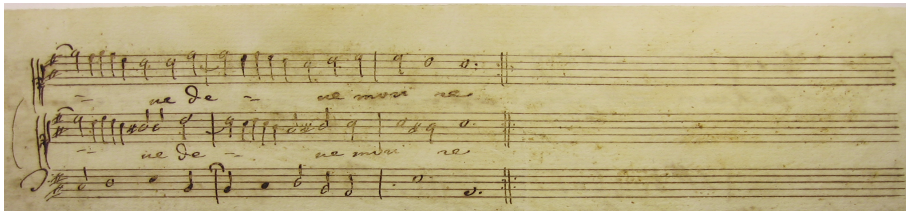 = ne de = ne mori re
= ne de = ne mori re